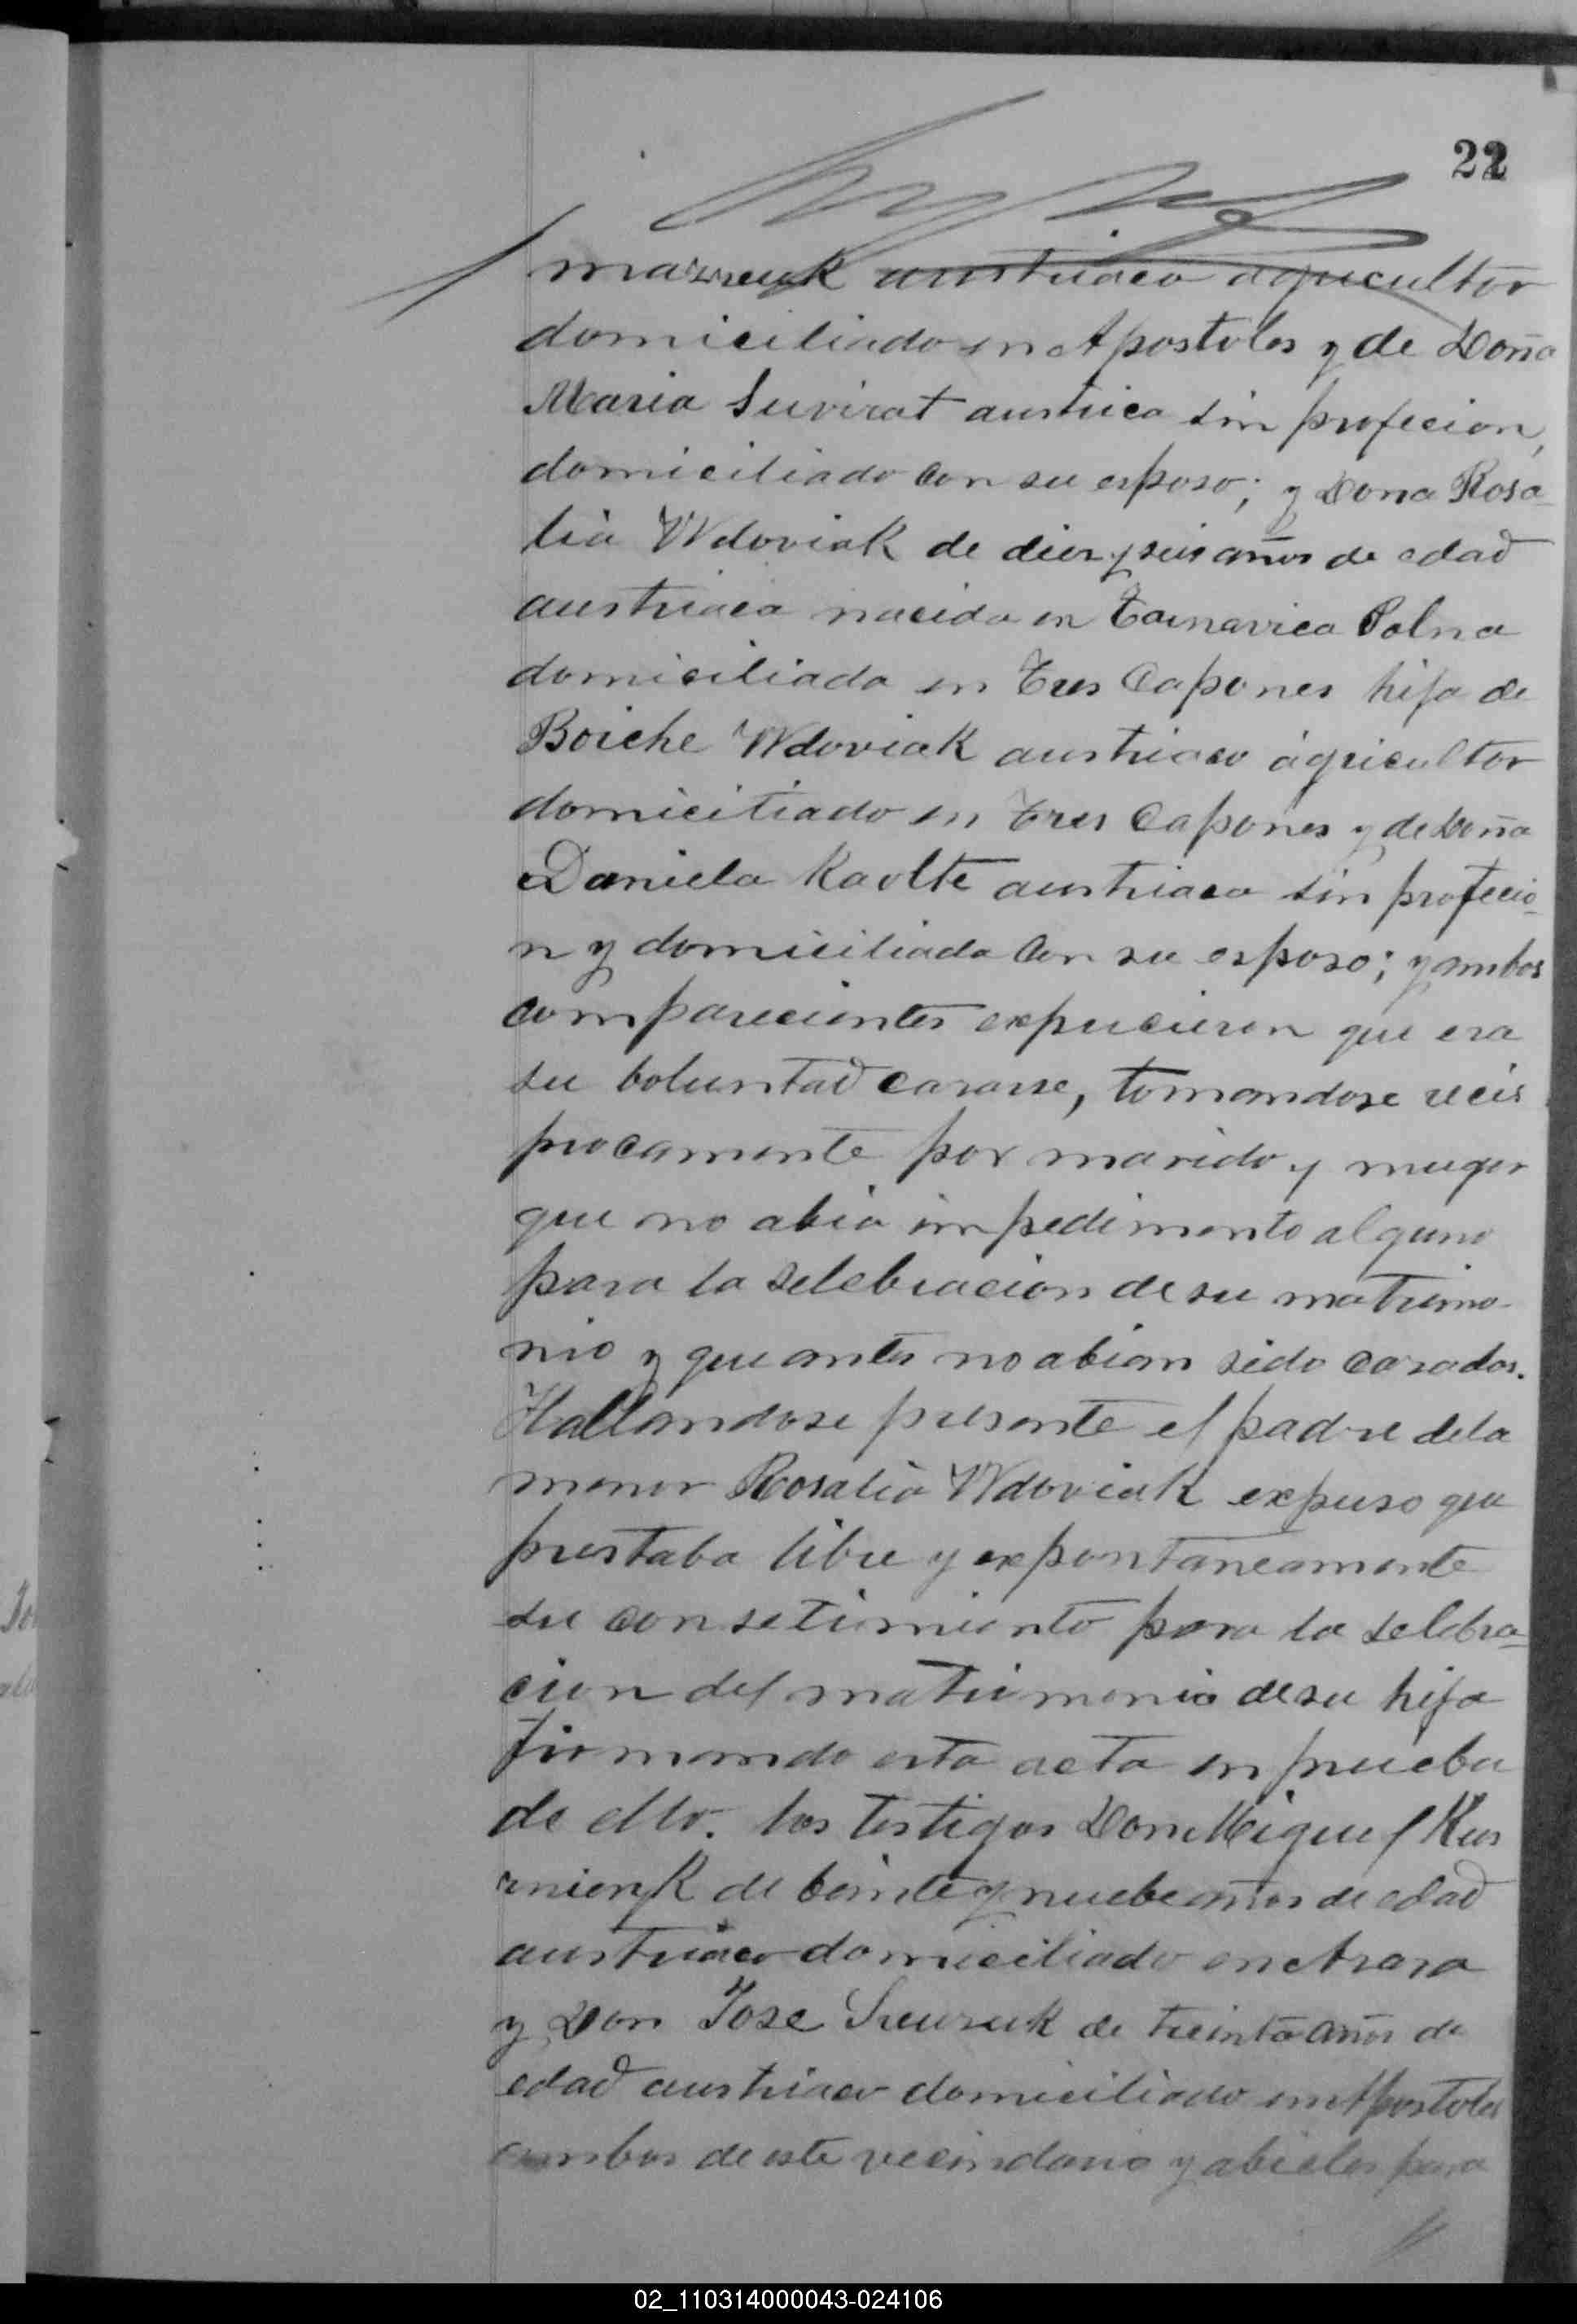 22
austriaco agricultor
domiciliado en Apostoles y de Doña
Maria Suvirat austrica sin profecion,
domiciliado con su esposo; y Dona Rosa-
lia Wdoviak de diez y seis años de edad
austriaca nacida en Tarnavica Polna
domiciliada en Tres Capones hija de
Boiche Wdoviak austriaco agricultor
domiciliado en Tres Capones y de Doña
Daniela Kaolte austriaca sin profecio-
n y domiciliada con su esposo; y ambos
comparecientes expucieron que era
su boluntad casarse, tomandose recis
procamente por marido y muger
que no abia impedimento alguno
para la selebracion de su matrimo-
nio y que antes no abian sido casados.
Hallandose presente el padre dela
menor Rosalia Wdoviak expuso que
prestaba libre y expontaneamente
su consetimiento para la selebra-
cion del matrimonio de su hija
firmando esta acta en prueba
de ello. Los testigos Don Miguel Kus
de beinte y nuebe años de edad
austriaco domiciliado en Azara
y Don Jose de treinta años de
edad austriaco domiciliado en Apostoles
ambos de este vecindario y abieles para
02_110314000043-024106